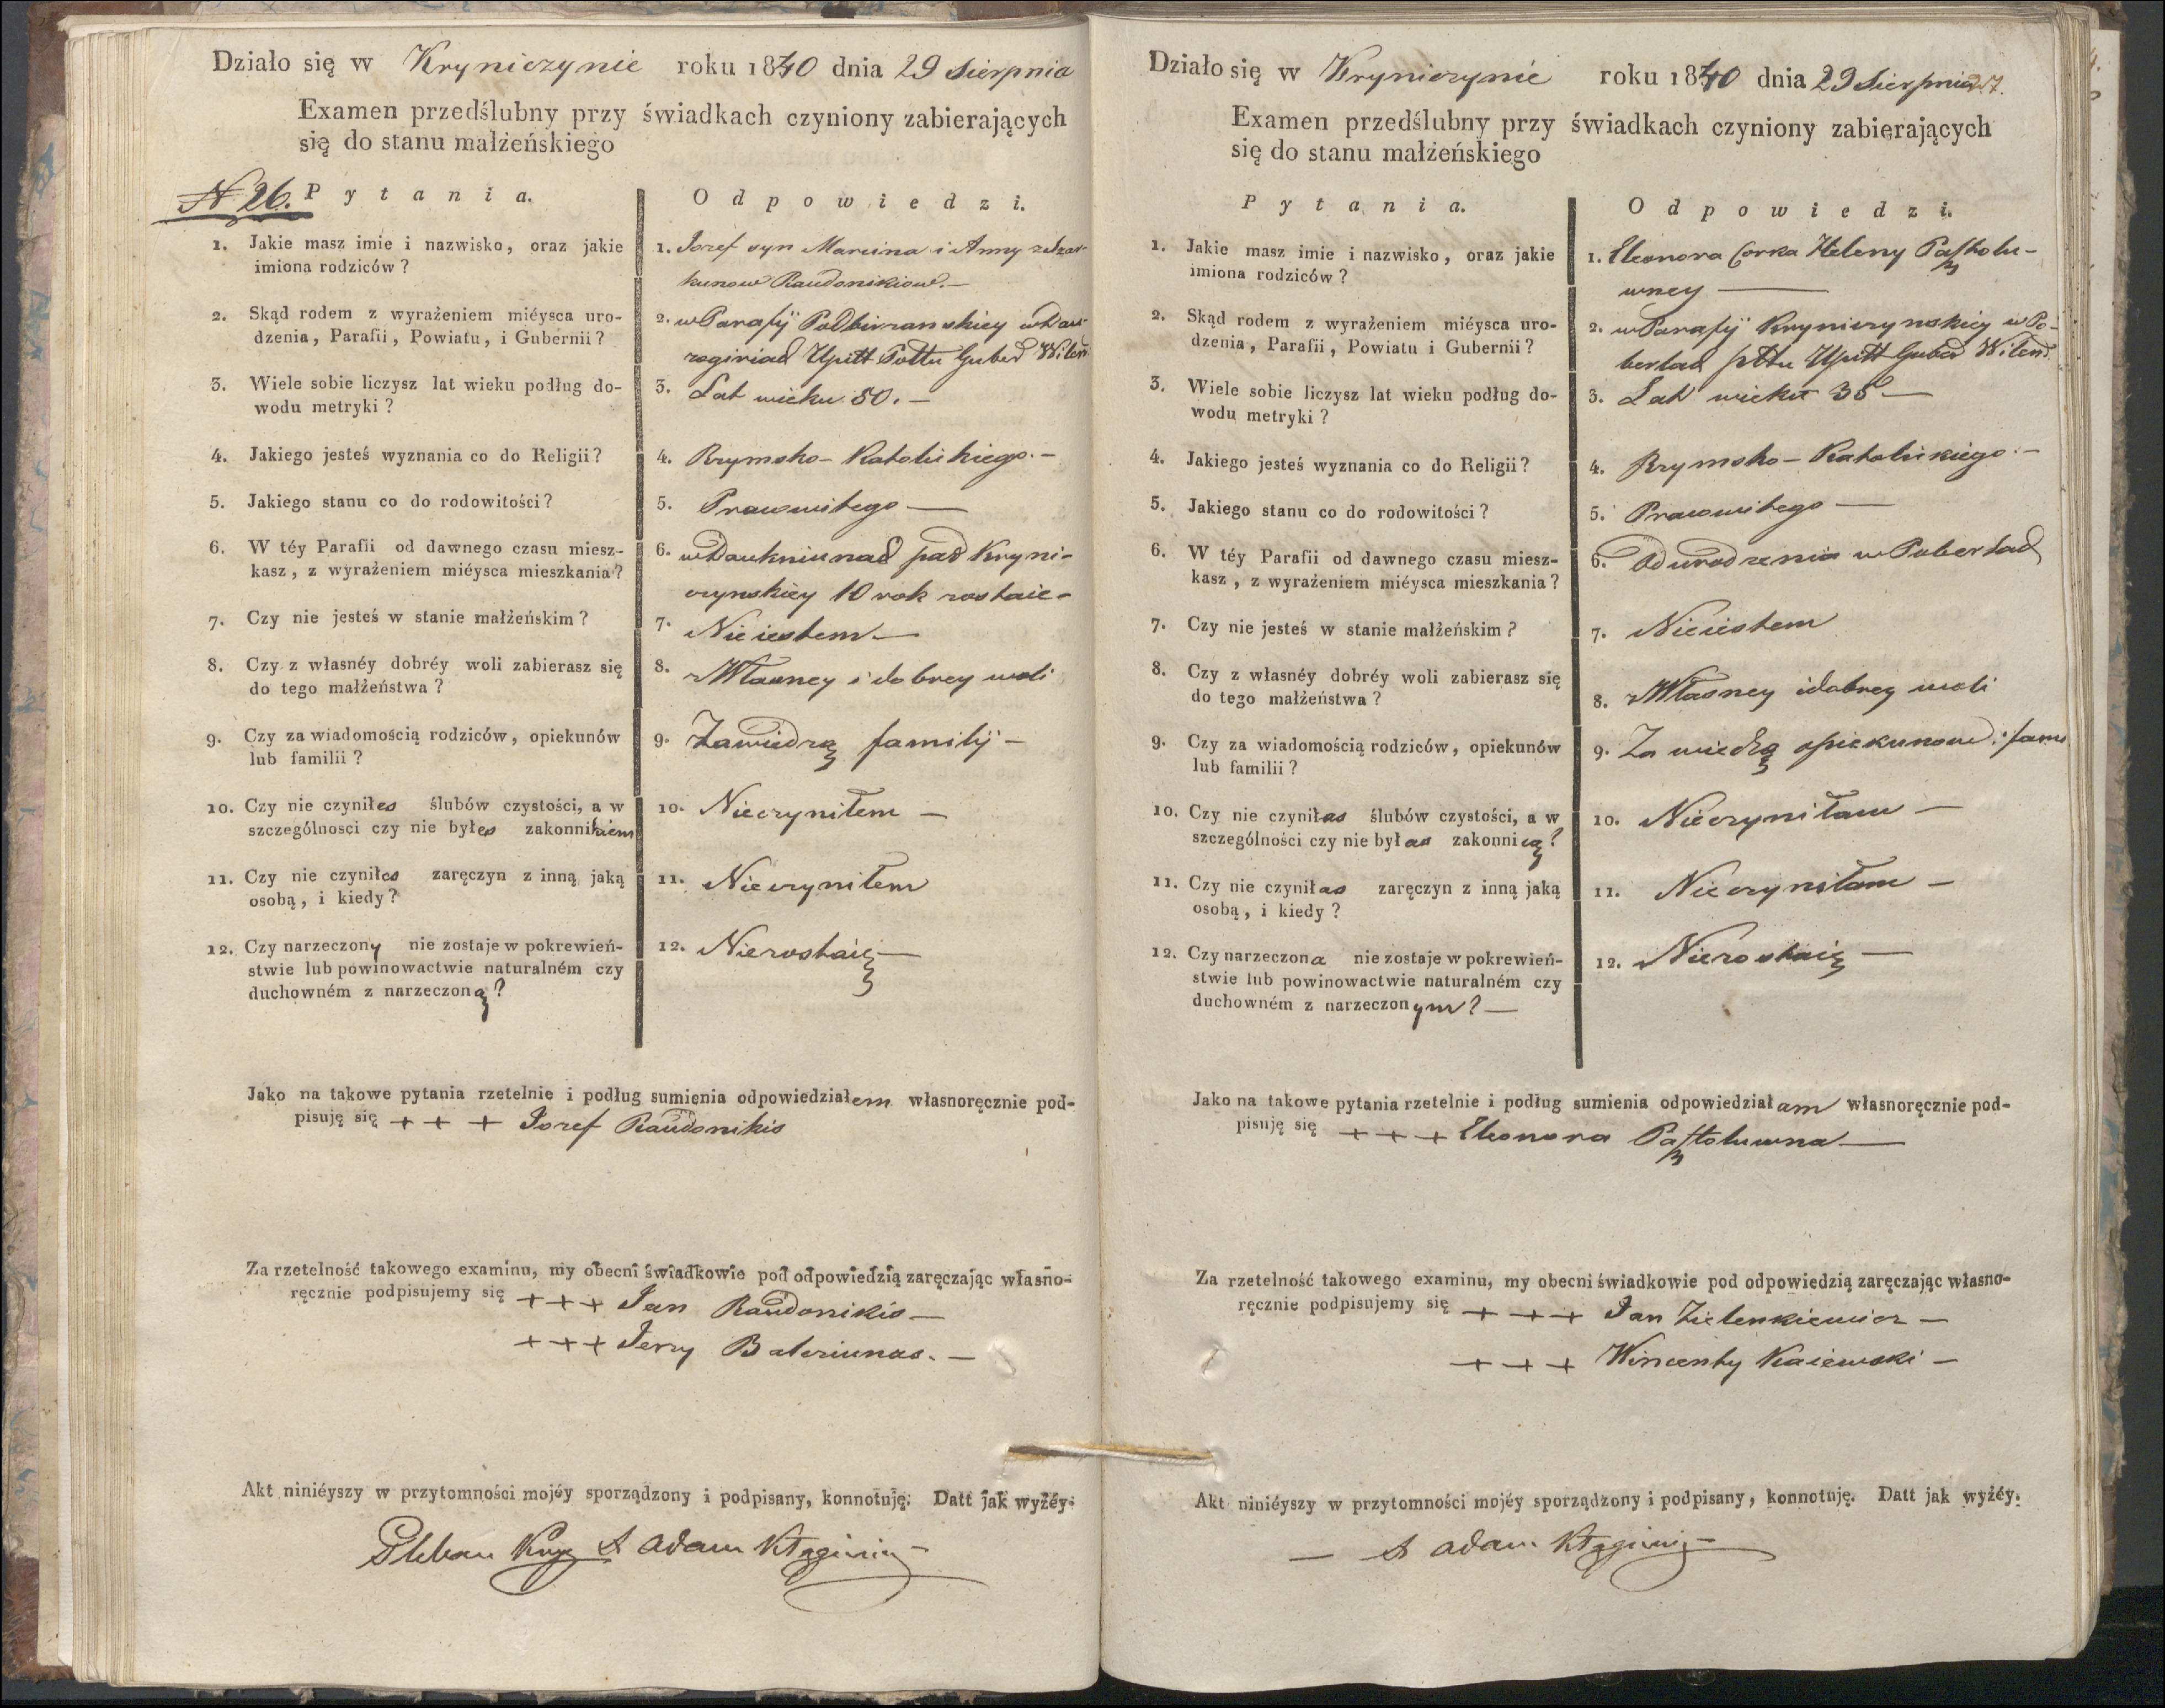 Działo się w Kryniczynie roku 1840 dnia 29 Sierpnia
Examen przedślubny przy świadkach czyniony zabierających
się do stanu małżeńskiego
N 26. Pytania. Odpowiedzi.
1. Jakie masz imie i nazwisko, oraz jakie
imiona rodziców?
1. Jozef syn Marcina i Anny
Raudonikiow.—
2. Skąd rodem z wyrażeniem miéysca uro-
dzenia, Parafii, Powiatu, i Gubernii?
2. w Parafij Podbirzanskiey
Upitt Pottu Guber Wilen
3. Wiele sobie liczysz lat wieku podług do-
wodu metryki?
3. Lat wieku 50.—
4. Jakiego jesteś wyznania co do Religii?
4. Rzymsko-Katolickiego.—
5. Jakiego stanu co do rodowitości?
5. Prawowitego—
6. W téy Parafii od dawnego czasu miesz-
kasz, z wyrażeniem miéysca mieszkania?
6. w Daukniunad par Kryni-
czynskiey 10 rok zostaie-
7. Czy nie jesteś w stanie małżeńskim?
7. Nie iestem—
8. Czy z własnéy dobréy woli zabierasz się
do tego małżeństwa?
8. z Własney i dobrey woli
9. Czy za wiadomością rodziców, opiekunów
lub familii?
9. Zawiedzą familij—
10. Czy nie czyniłes ślubów czystości, a w
szczególnosci czy nie byłes zakonnikiem
10. Nieczyniłem—
11. Czy nie czyniłes zaręczyn z inną jaką
osobą, i kiedy?
11. Nieczyniłem
12. Czy narzeczony nie zostaje w pokrewień-
stwie lub powinowactwie naturalném czy
duchowném z narzeczoną?
12. Niezostaię—
Jako na takowe pytania rzetelnie i podług sumienia odpowiedziałem własnoręcznie pod-
pisuję się + + + Jozef Raudonikis
Za rzetelność takowego examinu, my obecni świadkowie pod odpowiedzią zaręczając własno-
ręcznie podpisujemy się + + + Jan Raudonikis—
+ + + Jerzy Balcziunas.—
Akt niniéyszy w przytomności mojéy sporządzony i podpisany, konnotuję. Datt jak wyżéy.
Pleban X Adam
Działo się w Kryniczynie roku 1840 dnia 29 Sierpnia 217.
Examen przedślubny przy świadkach czyniony zabierających
się do stanu małżeńskiego
Pytania. Odpowiedzi.
1. Jakie masz imie i nazwisko, oraz jakie
imiona rodziców?
1. Eleonora Corka Heleny
wney—
2. Skąd rodem z wyrażeniem miéysca uro-
dzenia, Parafii, Powiatu i Gubernii?
2. w Parafij Kryniczynskiey w Po-
bertad pttu Upitt Guber Wilens.
3. Wiele sobie liczysz lat wieku podług do-
wodu metryki?
3. Lat wieku 38—
4. Jakiego jesteś wyznania co do Religii?
4. Rzymsko-Katolickiego.—
5. Jakiego stanu co do rodowitości?
5. Prawowitego—
6. W téy Parafii od dawnego czasu miesz-
kasz, z wyrażeniem miéysca mieszkania?
6. Od urodzenia w Pobertad
7. Czy nie jesteś w stanie małżeńskim?
7. Nieiestem
8. Czy z własnéy dobréy woli zabierasz się
do tego małżeństwa?
8. z Własney i dobrey woli
9. Czy za wiadomością rodziców, opiekunów
lub familii?
9. Za wiedzą opiekunow i fami
10. Czy nie czyniłas ślubów czystości, a w
szczególności czy nie byłas zakonnicą?
10. Nieczyniłam—
11. Czy nie czyniłas zaręczyn z inną jaką
osobą, i kiedy?
11. Nieczyniłam—
12. Czy narzeczona nie zostaje w pokrewień-
stwie lub powinowactwie naturalném czy
duchowném z narzeczonym?—
12. Niezostaię—
Jako na takowe pytania rzetelnie i podług sumienia odpowiedziałam własnoręcznie pod-
pisuję się + + + Eleonora
Za rzetelność takowego examinu, my obecni świadkowie pod odpowiedzią zaręczając własno-
ręcznie podpisujemy się + + + Jan Zielenkiewicz—
+ + + Wincenty Kaiewski—
Akt niniéyszy w przytomności mojéy sporządzony i podpisany, konnotuję. Datt jak wyżéy.
— X Adam